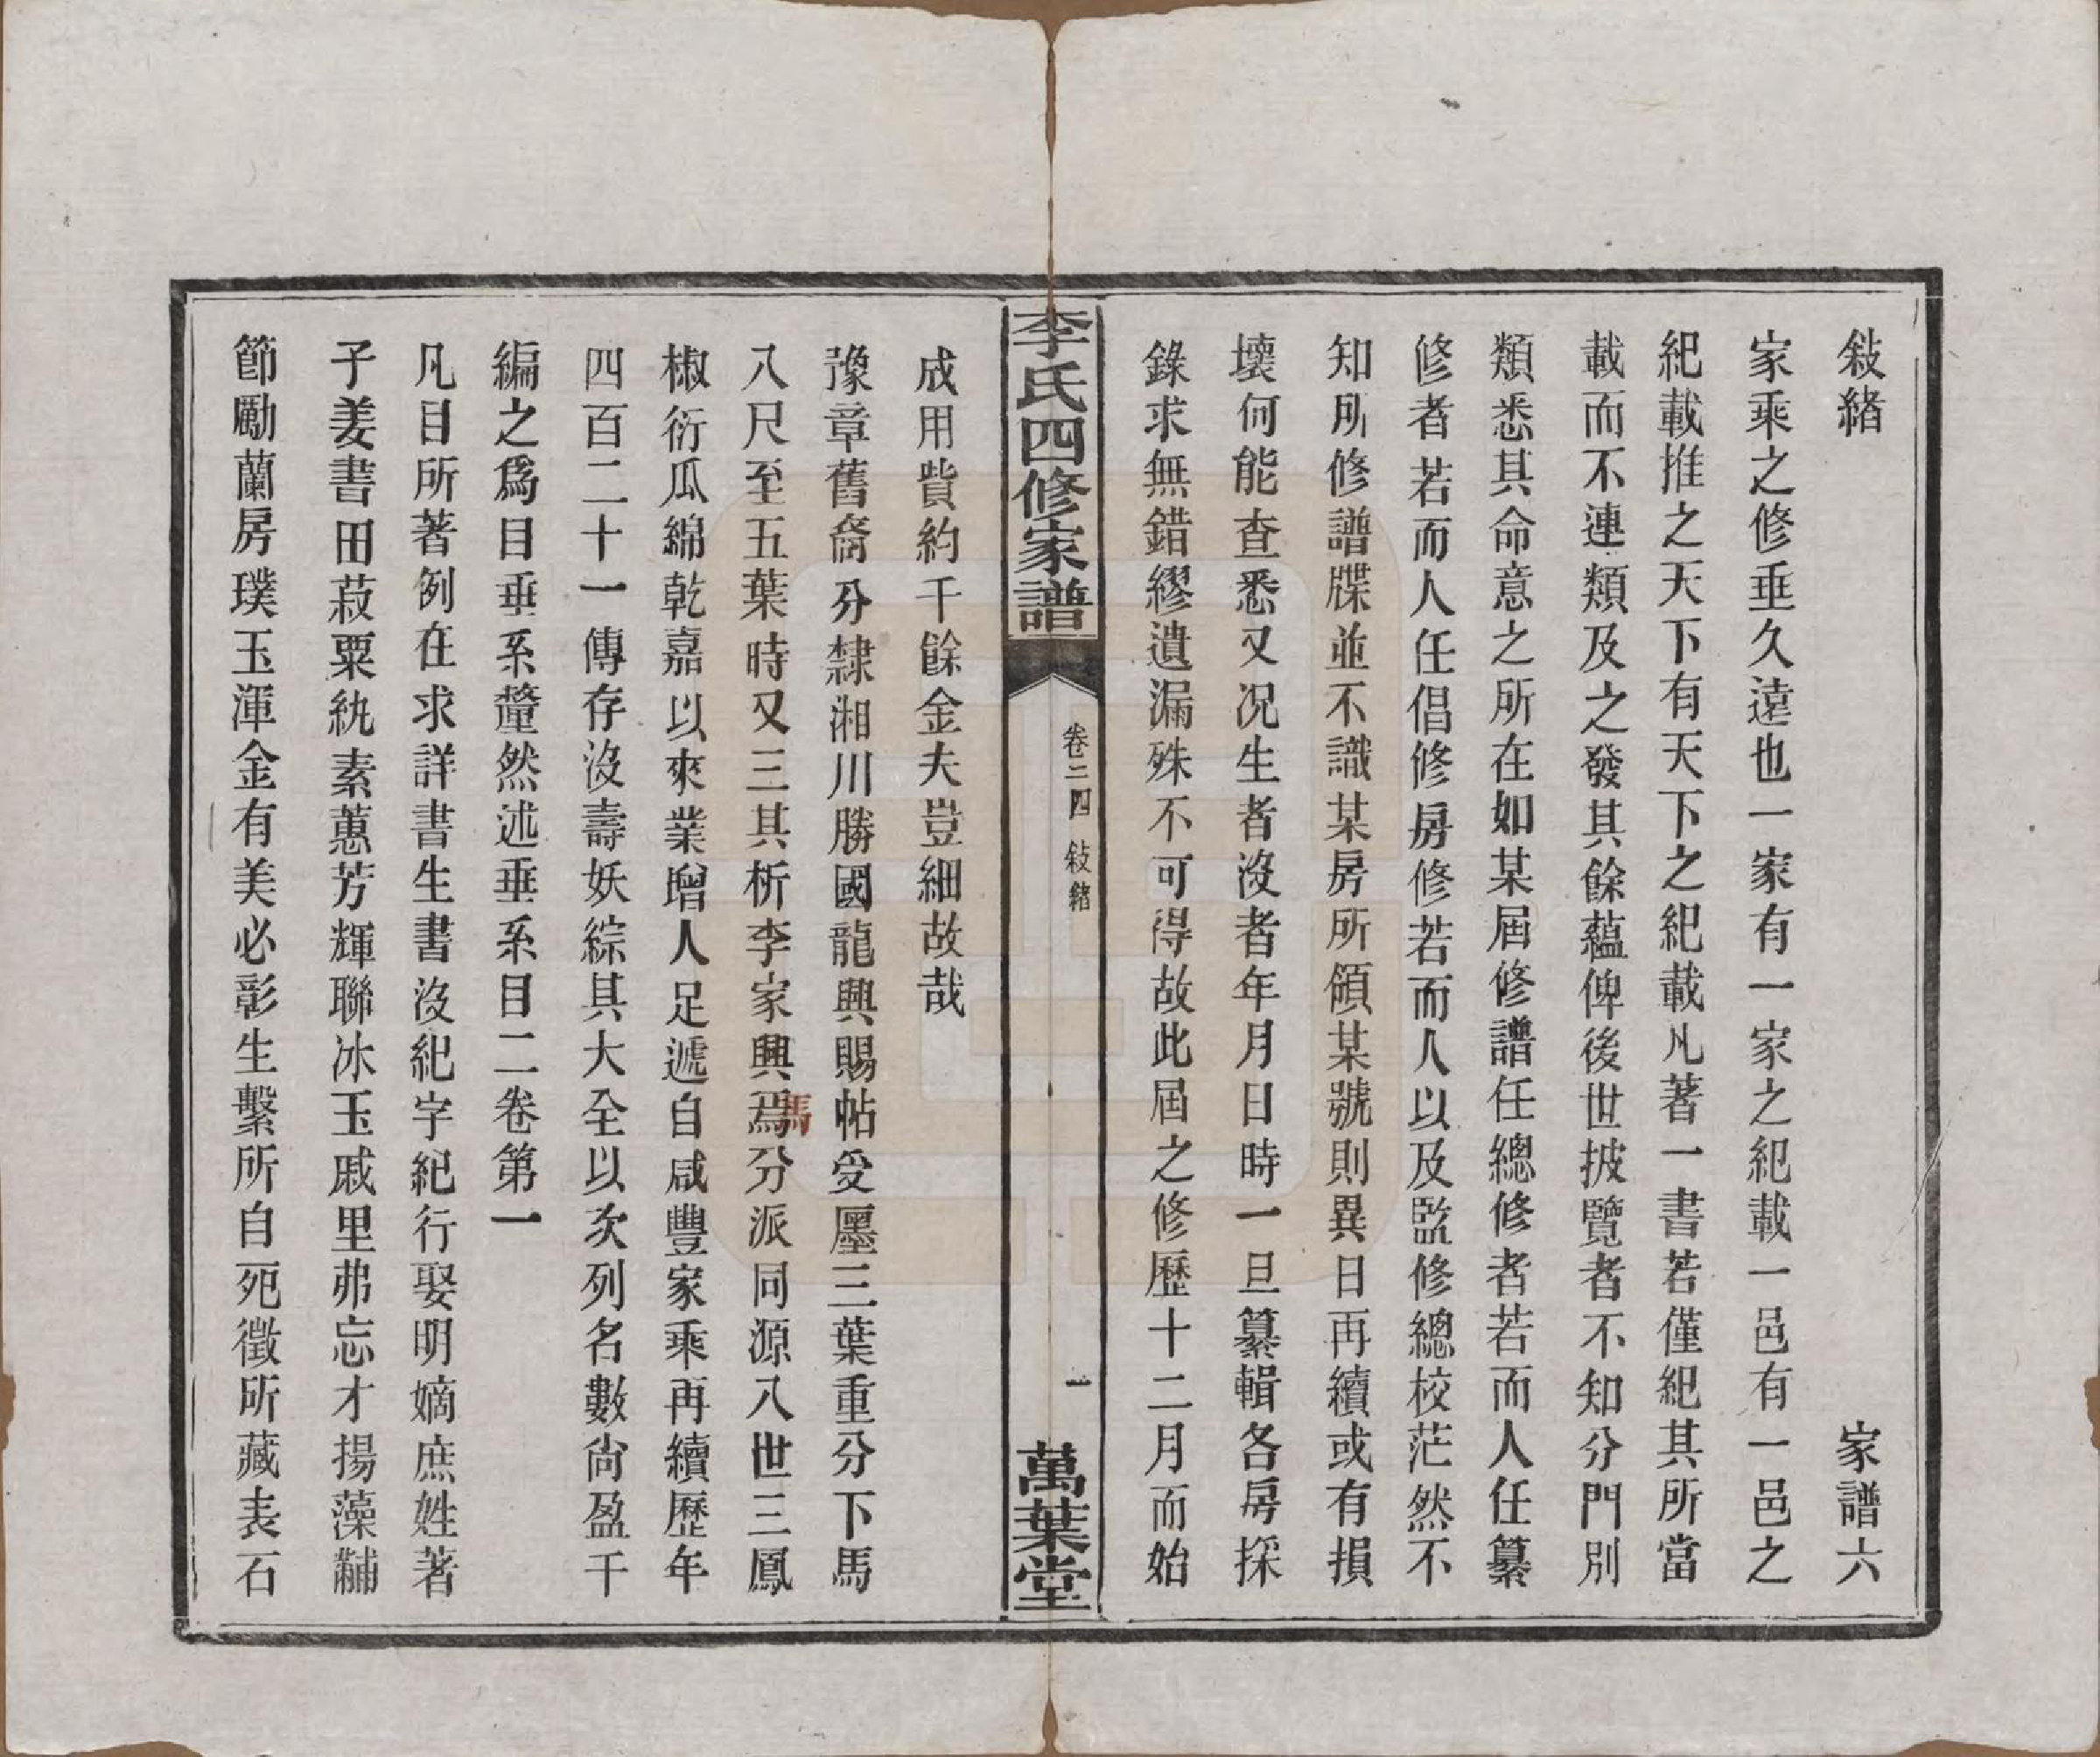 敍緒 家譜六
家乘之修垂久遠也一家有一家之紀載一邑有一邑之
紀載推之天下有天下之紀載凡著一書若僅紀其所當
載而不連類及之發其餘蘊俾後世披覽者不知分門別
類悉其命意之所在如某屆修譜任總修者若而人任纂
修者若而人任倡修房修若而人以及監修總校茫然不
知所修譜牒並不識某房所領某號則異日再續或有損
壞何能查悉又况生者沒者年月日時一旦纂輯各房採
錄求無錯繆遺漏殊不可得故此屆之修歷十二月而始
李氏四修家譜 卷二四 敍緒 一 萬葉堂
成用貲約千餘金夫豈細故哉
豫章舊裔分隸湘川勝國龍興賜帖受廛三葉重分下馬
八尺至五葉時又三其析李家興馬分派同源八世三鳳
椒衍瓜綿乾嘉以來業增人足遞自咸豐家乘再續歷年
四百二十一傳存沒壽妖綜其大全以次列名數尙盈千
編之爲目垂系釐然述垂系目二卷第一
凡目所著例在求詳書生書沒紀字紀行娶明嫡庶姓著
子姜書田菽粟紈素蕙芳輝聯冰玉戚里弗忘才揚藻黼
節勵蘭房璞玉渾金有美必彰生繫所自死徵所藏表石